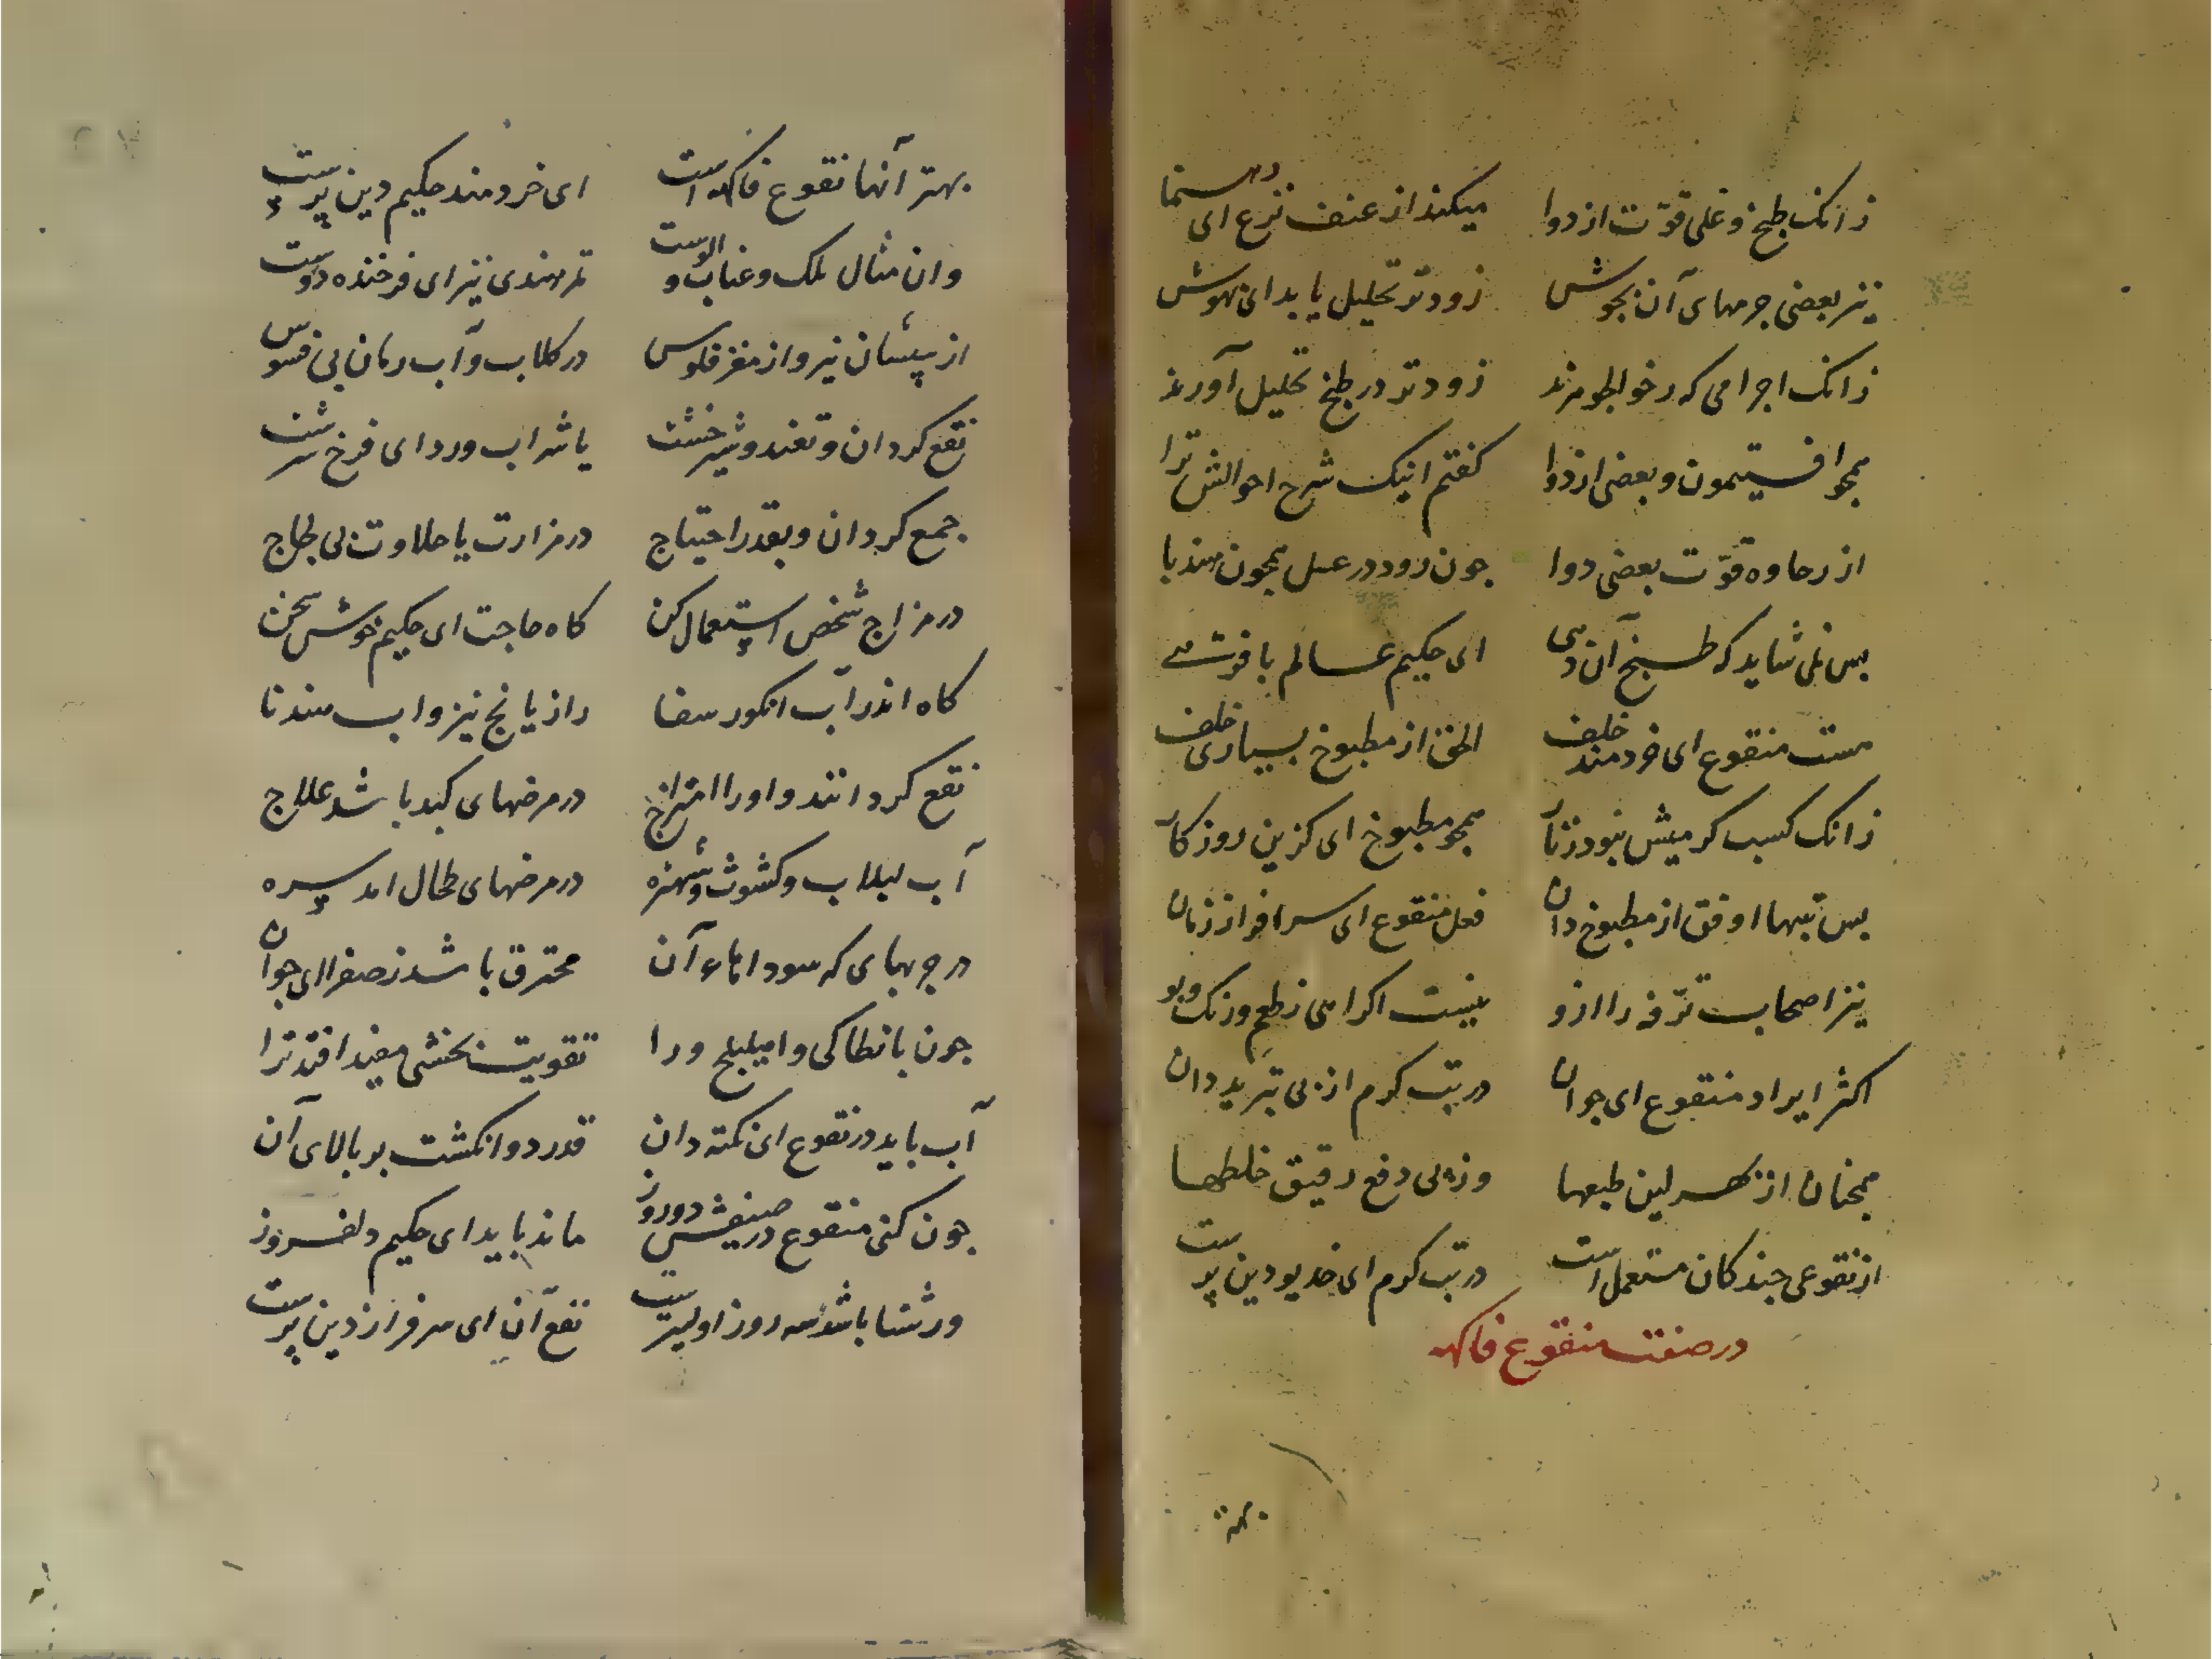 زانک طبخ و غلی قوّت از دوا میکند از عنف نزع ای رهنما
نیز بعضی جرمهای آن بجوش زودتر تحلیل یابد ای بهوش
زانک اجرامی که رخو الجوهرند زودتر در طبخ تحلیل آورند
همچو افستیمون و بعضی از دوا کفتم اینک شرح احوالش ترا
از رخاوه قوّت بعضی دوا جون رود در غسل همچون هندبا
بس نمی شاید که طبخ آن دهی ای حکیم عالم با فرّهی
هست منقوع ای خردمند خلف الطف از مطبوخ بسیاری خلف
زانک کسب کرمیش نبود ز نار همچو مطبوخ ای کزین روزکار
بس تبهها اوفق از مطبوخ دان فعل منقوع ای سرافراز زمان
نیز اصحاب ترّفه را ازو نیست اکراهی ز طعم و رنک و بو
اکثر ایراد منقوع ای جوان در تب کرم از بی تبرید دان
همچنان از بهر لین طبعها وز بی دفع رقیق خلطها
از نقوعی جند کان مستعمل است در تب کرم ای خدیو دین برست
در صفت منقوع فاکهه
بهتر آنها نقوع فاکهه است ای خردمند حکیم دین پرست
وان مثال لک و عناب و الوست تمر هندی نیز ای فرخنده دوست
از پیشان نیز و از مغز فلوس در کلاب و آب رمان بی فسوس
نقع کردان و تغند و شیرخشت یا شراب ورد ای فرخ سرشت
جمع کردان و بقدر احتیاج در مزارت یا حلاوت بی لجاج
در مزاج شخص استعمال کن کاه حاجت ای حکیم خوش سخن
کاه اندر آب انکور سفا رازیانج نیز و اب هندبا
نقع کردانند و اورا امتزاج در مرضهای کبد باشد علاج
آب لبلاب و کشوث و شهتره در مرضهای طحال امد سره
در جربهای که سودا ماء آن محترق باشد ز صفرا ای جوان
جون بانطاکی و املیلج ورا تقویت بخشی مفید افتد ترا
آب باید در نقوع ای نکته دان قدر دو انکشت بر بالای آن
جون کنی منقوع در صیفش دو روز ماند باید ای حکیم دلفروز
ور شتا باشد سه روز اولیترست نقع آن ای سرفراز دین پرست